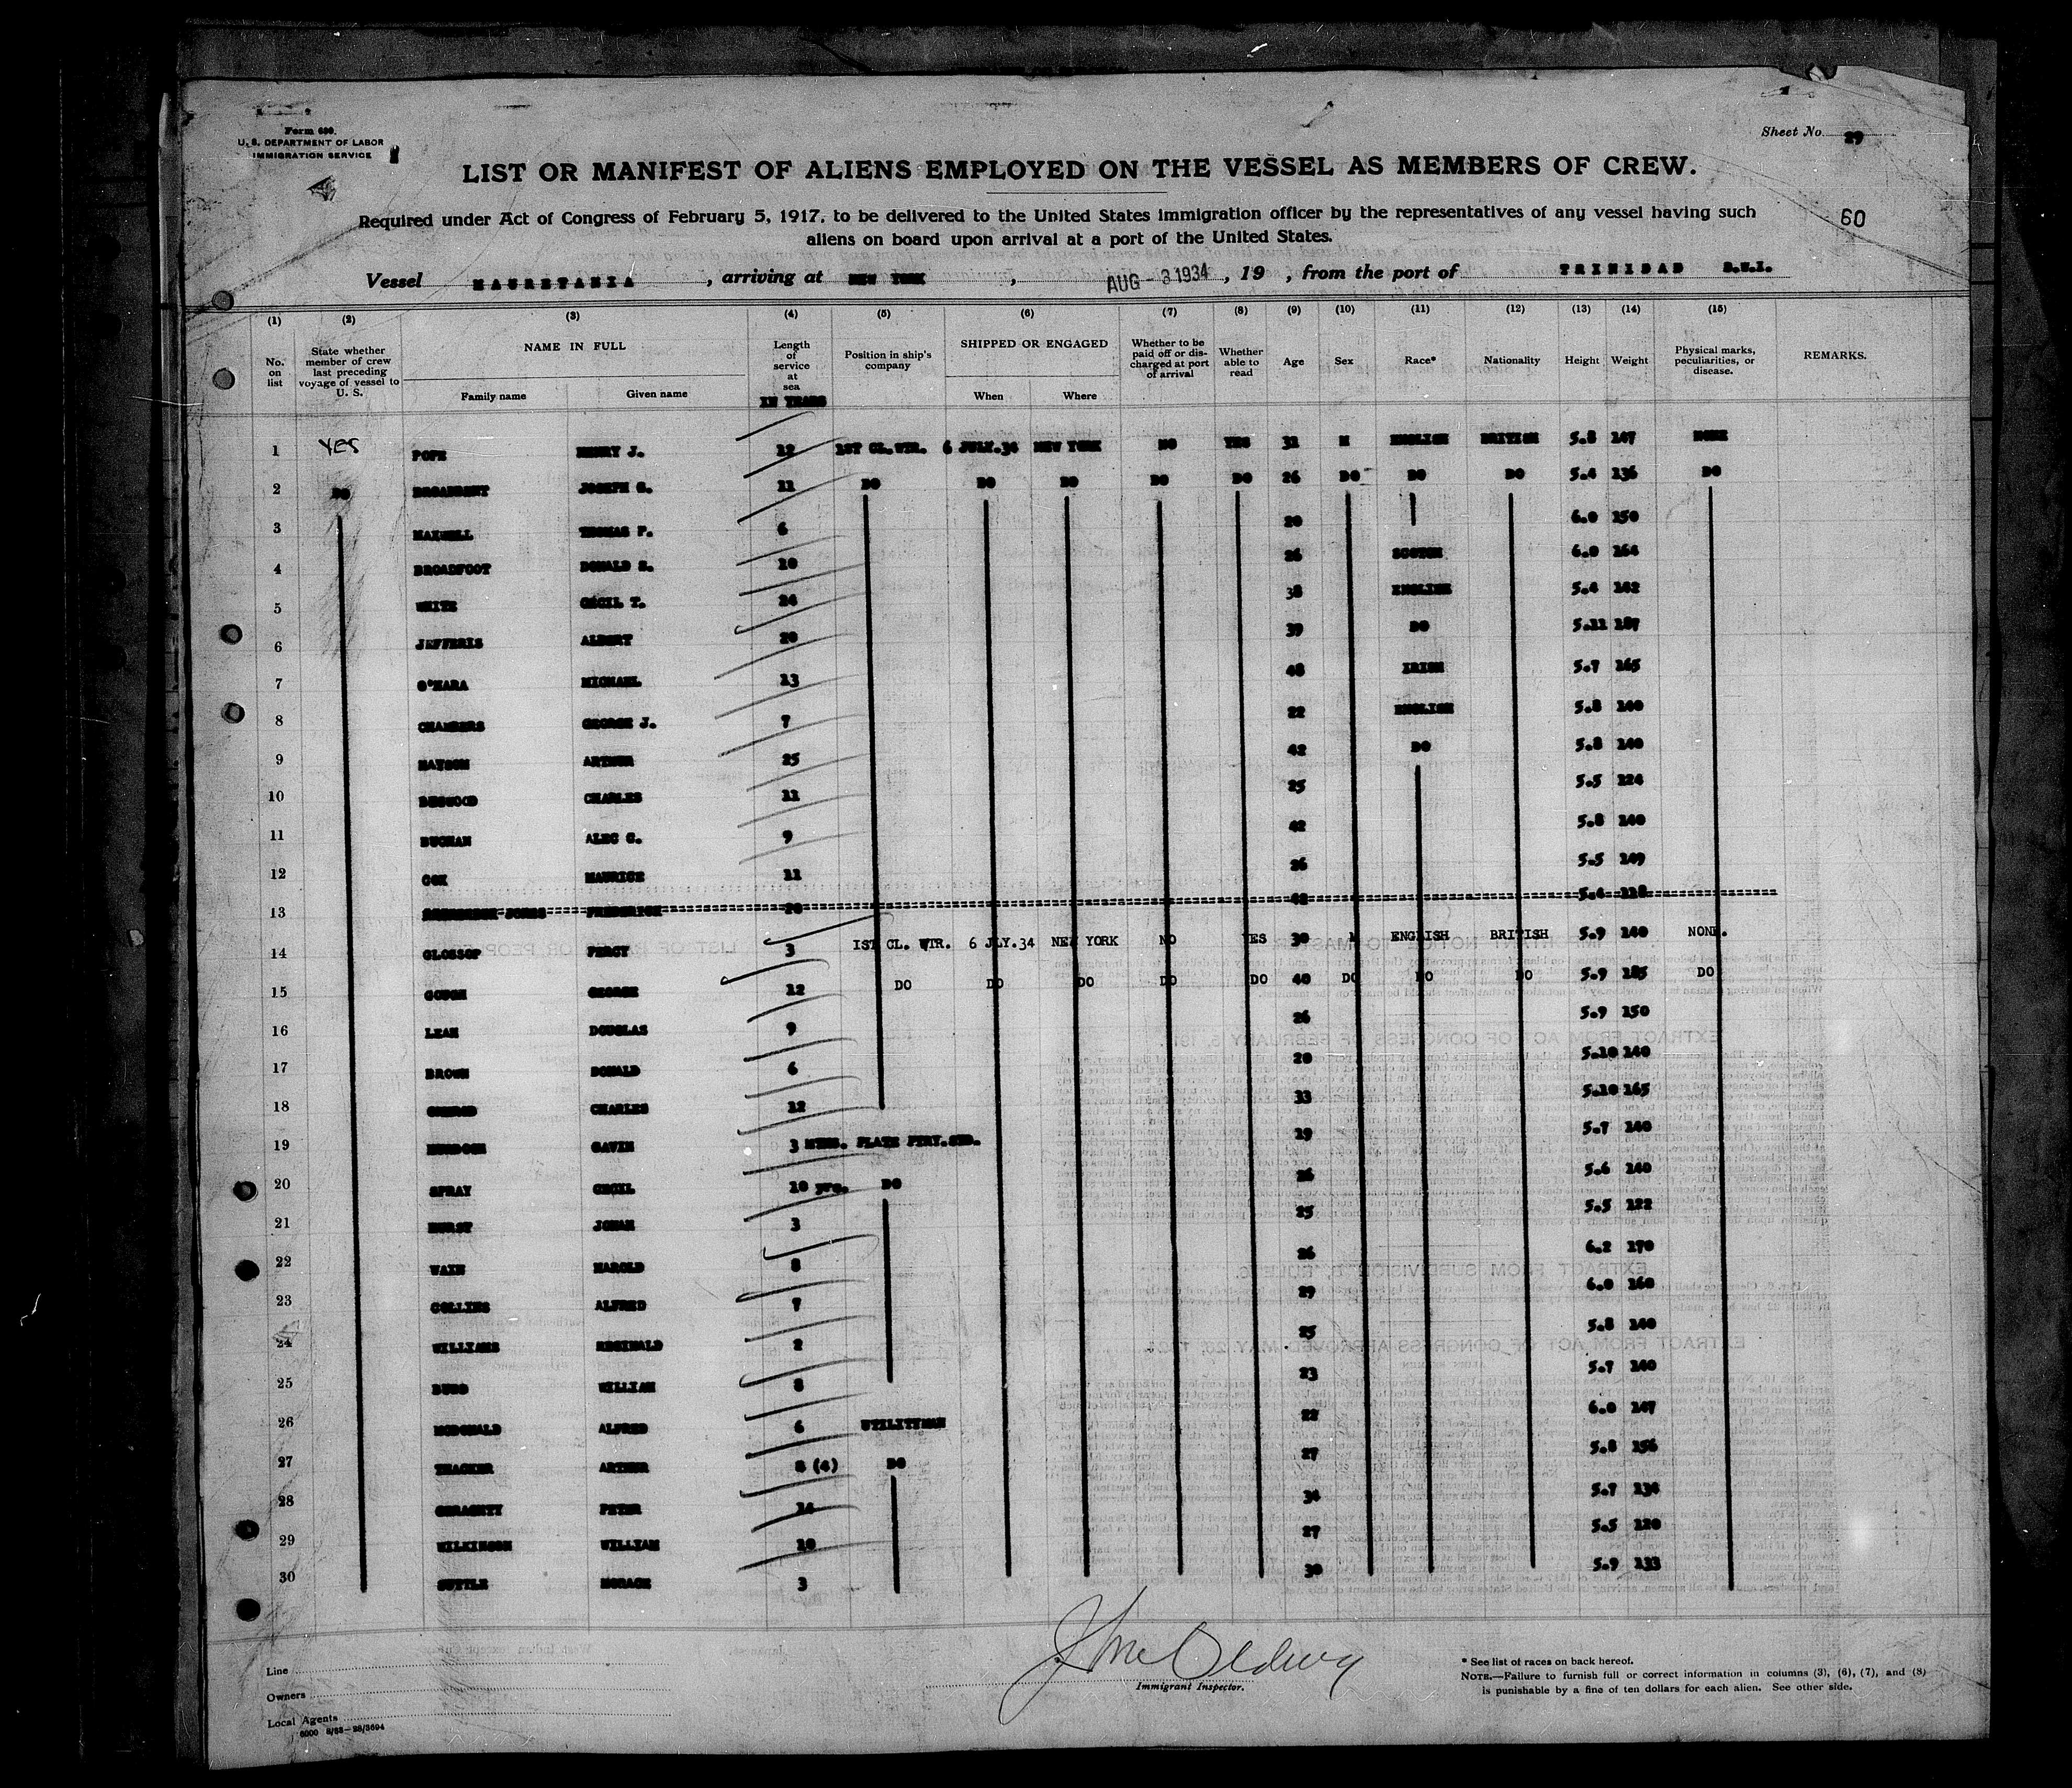 Form 680.
U. S. DEPARTMENT OF LABOR
IMMIGRATION SERVICE
Sheet No. 29
LIST OR MANIFEST OF ALIENS EMPLOYED ON THE VESSEL AS MEMBERS OF CREW.
Required under Act of Congress of February 5, 1917, to be delivered to the United States immigration officer by the representatives of any vessel having such
aliens on board upon arrival at a port of the United States.
60
Vessel MAURETANIA, arriving at NEW YORK, AUG - 3 1934, 19 , from the port of TRINIDAD B.W.I.
(1) (2) (3) (4) (5) (6) (7) (8) (9) (10) (11) (12) (13) (14) (15)
No. on list State whether member of crew last preceding voyage of vessel to U. S. NAME IN FULL Family name Given name Length of service at sea IN YEARS Position in ship's company SHIPPED OR ENGAGED When Where Whether to be paid off or discharged at port of arrival Whether able to read Age Sex Race* Nationality Height Weight Physical marks, peculiarities, or disease. REMARKS.
1 YES POPE HENRY J. 12 1ST CL.WTR. 6 JULY.34 NEW YORK NO YES 31 M ENGLISH BRITISH 5.8 147 NONE
2 DO BROADBENT JOSEPH G. 11 DO DO DO DO DO 26 DO DO DO 5.4 136 DO
3 MAXWELL THOMAS P. 6 20 6.0 150
4 BROADFOOT DONALD S. 10 26 SCOTCH 6.0 164
5 WHITE CECIL T. 24 38 ENGLISH 5.4 142
6 JEFFERIS ALBERT 20 39 DO 5.11 187
7 O'HARA MICHAEL 13 48 IRISH 5.7 165
8 CHAMBERS GEORGE J. 7 22 ENGLISH 5.8 140
9 ARTHUR 25 42 DO 5.8 140
10 CHARLES 11 25 5.5 124
11 BUCHAN ALEC G. 9 42 5.8 140
12 COX MAURICE 11 26 5.5 149
13 JONES FREDERICK 5.4
14 GLOSSOP PERCY 3 IST CL. WTR. 6 JLY.34 NEW YORK NO YES 30 M ENGLISH BRITISH 5.9 140 NONE.
15 GOUGH GEORGE 12 DO DO DO DO DO 40 DO DO DO 5.9 185 DO
16 LEAH DOUGLAS 9 26 5.9 150
17 BROWN DONALD 6 20 5.10 140
18 CHARLES 12 33 5.10 165
19 MURDOCH GAVIN 3 MTHS. PLATE PTRY.STD. 19 5.7 140
20 SPRAY CECIL 10 yrs. DO 26 5.6 140
21 HURST JONAH 3 25 5.5 122
22 WAIN HAROLD 8 26 6.2 170
23 COLLINS ALFRED 7 29 6.0 160
24 WILLIAMS REGINALD 2 25 5.8 140
25 WILLIAM 8 23 5.7 140
26 MCDONALD ALFRED 6 UTILITYMAN 22 6.0 147
27 THACKER ARTHUR 8 (4) DO 27 5.8 156
28 GERAGHTY PETER 14 34 5.7 134
29 WILKINSON WILLIAM 10 27 5.5 120
30 SUTTLE HORACE 3 30 5.9 133
Line
Owners
Local Agents
Immigrant Inspector.
* See list of races on back hereof.
NOTE.—Failure to furnish full or correct information in columns (3), (6), (7), and (8)
is punishable by a fine of ten dollars for each alien. See other side.